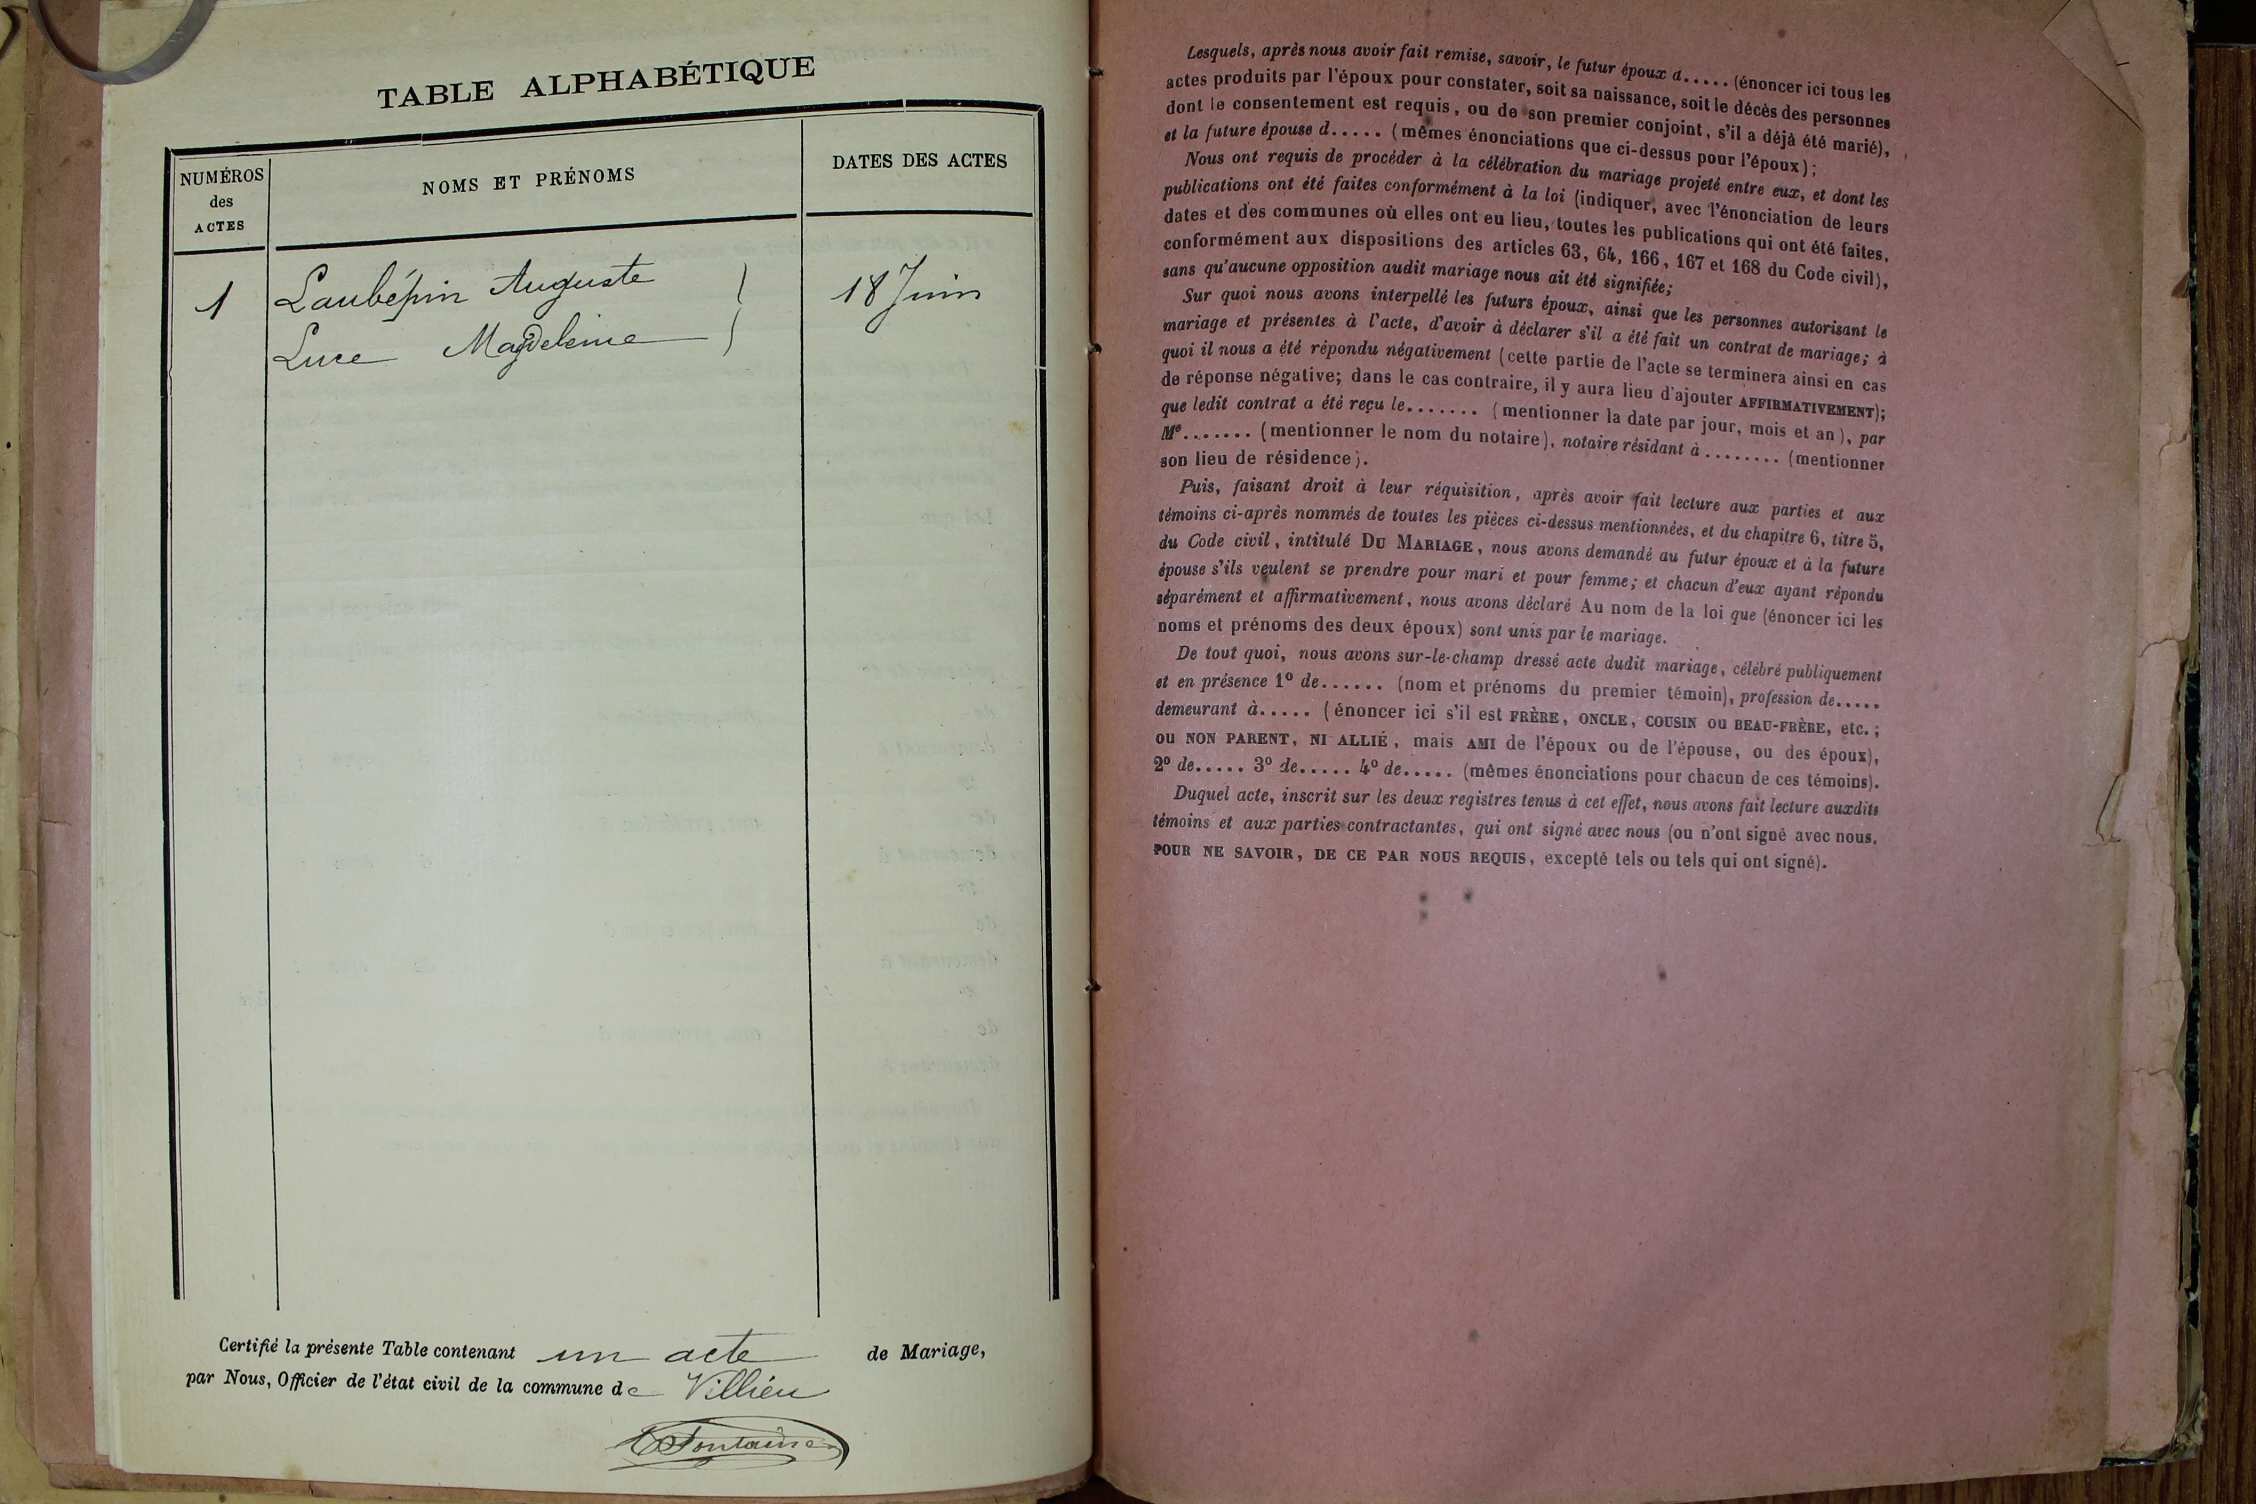 TABLE ALPHABÉTIQUE
NUMÉROS
des
ACTES
NOMS ET PRÉNOMS
DATES DES ACTES
1
Laubépin Auguste
18 Juin
Luce Magdeleine
Certifié la présente Table contenant un acte de Mariage,
par Nous, Officier de l'état civil de la commune de Villieu
Fontaine
Lesquels, après nous avoir fait remise, savoir, le futur époux d..... (énoncer ici tous les
actes produits par l'époux pour constater, soit sa naissance, soit le décès des personnes
dont le consentement est requis, ou de son premier conjoint, s'il a déjà été marié),
et la future épouse d..... (mêmes énonciations que ci-dessus pour l'époux);
Nous ont requis de procéder à la célébration du mariage projeté entre eux, et dont les
publications ont été faites conformément à la loi (indiquer, avec l'énonciation de leurs
dates et des communes où elles ont eu lieu, toutes les publications qui ont été faites,
conformément aux dispositions des articles 63, 64, 166, 167 et 168 du Code civil),
sans qu'aucune opposition audit mariage nous ait été signifiée;
Sur quoi nous avons interpellé les futurs époux, ainsi que les personnes autorisant le
mariage et présentes à l'acte, d'avoir à déclarer s'il a été fait un contrat de mariage; à
quoi il nous a été répondu négativement (cette partie de l'acte se terminera ainsi en cas
de réponse négative; dans le cas contraire, il y aura lieu d'ajouter AFFIRMATIVEMENT);
que ledit contrat a été reçu le....... (mentionner la date par jour, mois et an), par
Me....... (mentionner le nom du notaire), notaire résidant à ........ (mentionner
son lieu de résidence).
Puis, faisant droit à leur réquisition, après avoir fait lecture aux parties et aux
témoins ci-après nommés de toutes les pièces ci-dessus mentionnées, et du chapitre 6, titre 5,
du Code civil, intitulé DU MARIAGE, nous avons demandé au futur époux et à la future
épouse s'ils veulent se prendre pour mari et pour femme; et chacun d'eux ayant répondu
séparément et affirmativement, nous avons déclaré Au nom de la loi que (énoncer ici les
noms et prénoms des deux époux) sont unis par le mariage.
De tout quoi, nous avons sur-le-champ dressé acte dudit mariage, célébré publiquement
et en présence 1º de...... (nom et prénoms du premier témoin), profession de.....
demeurant à..... (énoncer ici s'il est FRÈRE, ONCLE, COUSIN OU BEAU-FRÈRE, etc.;
OU NON PARENT, NI ALLIÉ, mais AMI de l'époux ou de l'épouse, ou des époux),
2º de..... 3º de..... 4º de..... (mêmes énonciations pour chacun de ces témoins).
Duquel acte, inscrit sur les deux registres tenus à cet effet, nous avons fait lecture auxdits
témoins et aux parties contractantes, qui ont signé avec nous (ou n'ont signé avec nous.
POUR NE SAVOIR, DE CE PAR NOUS REQUIS, excepté tels ou tels qui ont signé).